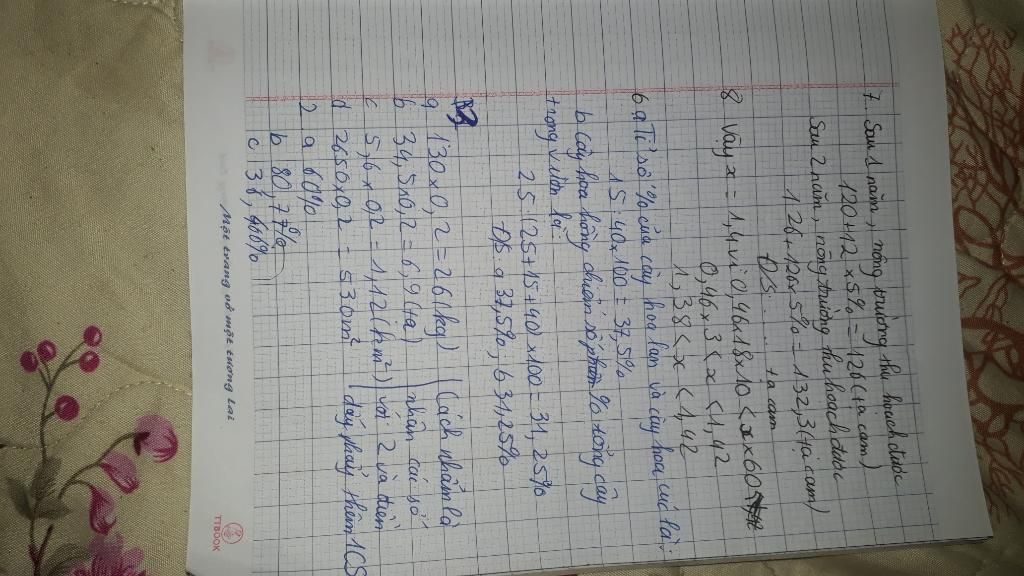 7. Sau 1 năm, nông trường thu hoạch được
120+12 x5% = 126(tạ cam)
Sau 2 năm, nông trường thu hoạch được
126+126x5% = 132,3(tạ cam)
ĐS: ... tạ cam
8 Vậy x = 1,4 vì 0,46x18x10 < x x60
0,46 x3 < x < 1,42
1,38 < x < 1,42
6 a Tỉ số % của cây hoa lan và cây hoa cúc là:
15:40x100 = 37,5%
b Cây hoa hồng chiếm số phần % tổng cây
trong vườn là:
25:(25+15+40 x100 = 31,25%
ĐS: a 37,5%; b 31,25%
a 130x0,2 = 26(kg) (Cách nhẩm là
b 34,5x0,2 = 6,9(tạ) nhân các số
c 5,6 x 0,2 = 1,12(hm²) với 2 và thêm
d 2650x0,2 = 530m² dấy phẩy thêm 1CS
2 a 60%
b 80,77%
c, 3 ,466%
Một trang vở một tương lai
TTBOOK